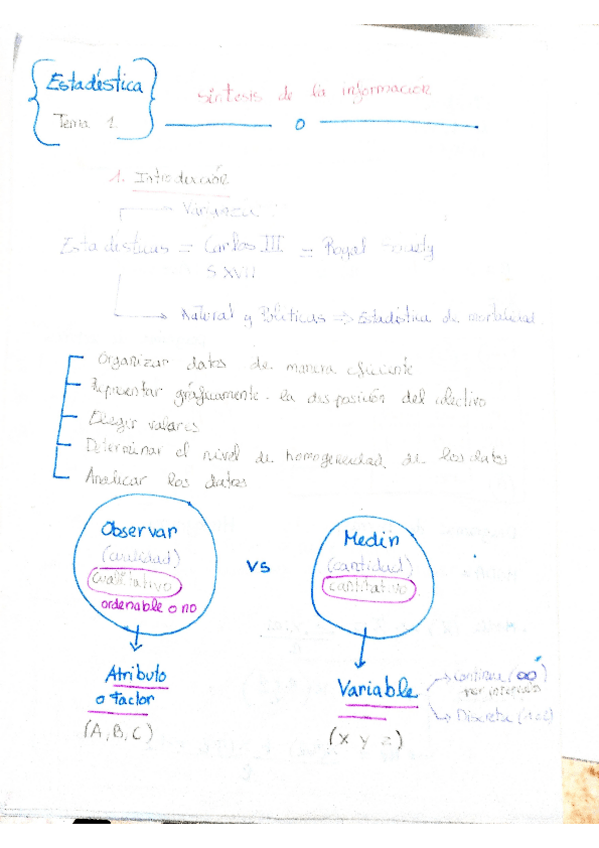 Estadística
Tema 1.
síntesis de la información
1. Introducción
Estadísticas = Carlos III = Royal Society
S.XVII
Natural y Políticas => Estadística de mortalidad
Organizar datos de manera eficiente
Representar gráficamente la disposición del colectivo
Elegir valores
Determinar el nivel de homogeneidad de los datos
Analizar los datos
Observar
(cualidad)
cualitativo
ordenable o no
vs
Medir
(cantidad)
cantitativo
Atributo
o factor
(A, B, C)
Variable
Continua (∞)
por intervalos
Discreta
(x y z)